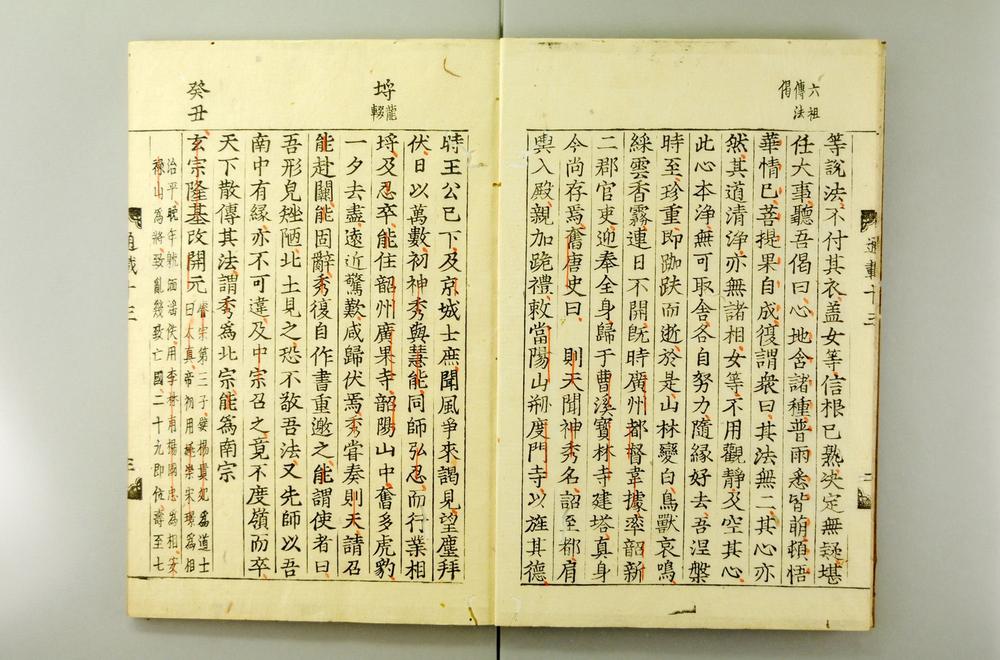 六祖
傳法
偈
等說法不付其衣盖女等信根已熟決定無疑堪
任大事聽吾偈曰心地含諸種普雨悉皆萌頓悟
華情已菩提果自成復謂衆曰其法無二其心亦
然其道清淨亦無諸相女等不用觀靜及空其心
此心本淨無可取舍各自努力隨緣好去吾涅槃
時至珍重即跏趺而逝於是山林變白鳥獸哀鳴
綵雲香霧連日不開旣時廣州都督韋據率韶新
二郡官吏迎奉全身歸于曹溪寶林寺建塔真身
今尚存焉舊唐史曰則天聞神秀名詔至都肩
輿入殿親加跪禮敕當陽山刱度門寺以旌其德
通載十三
埒
龍
輟
時王公已下及京城士庶聞風爭來謁見望塵拜
伏日以萬數初神秀與慧能同師弘忍而行業相
埒及忍卒能住韶州廣果寺韶陽山中舊多虎豹
一夕去盡遠近驚歎咸歸伏焉秀嘗奏則天請召
能赴闕能固辭秀復自作書重邀之能謂使者曰
吾形皃矬陋北土見之恐不敬吾法又先師以吾
南中有緣亦不可違及中宗召之竟不度嶺而卒
天下散傳其法謂秀爲北宗能爲南宗
癸丑
玄宗隆基改開元
睿宗第三子嬖楊貴妃爲道士
曰太真帝初用姚崇宋璟爲相
治平晚年躭酒滛佚用李林甫楊國忠爲相安
祿山爲將致亂幾致亡國二十元即位壽至七
通載十三
三